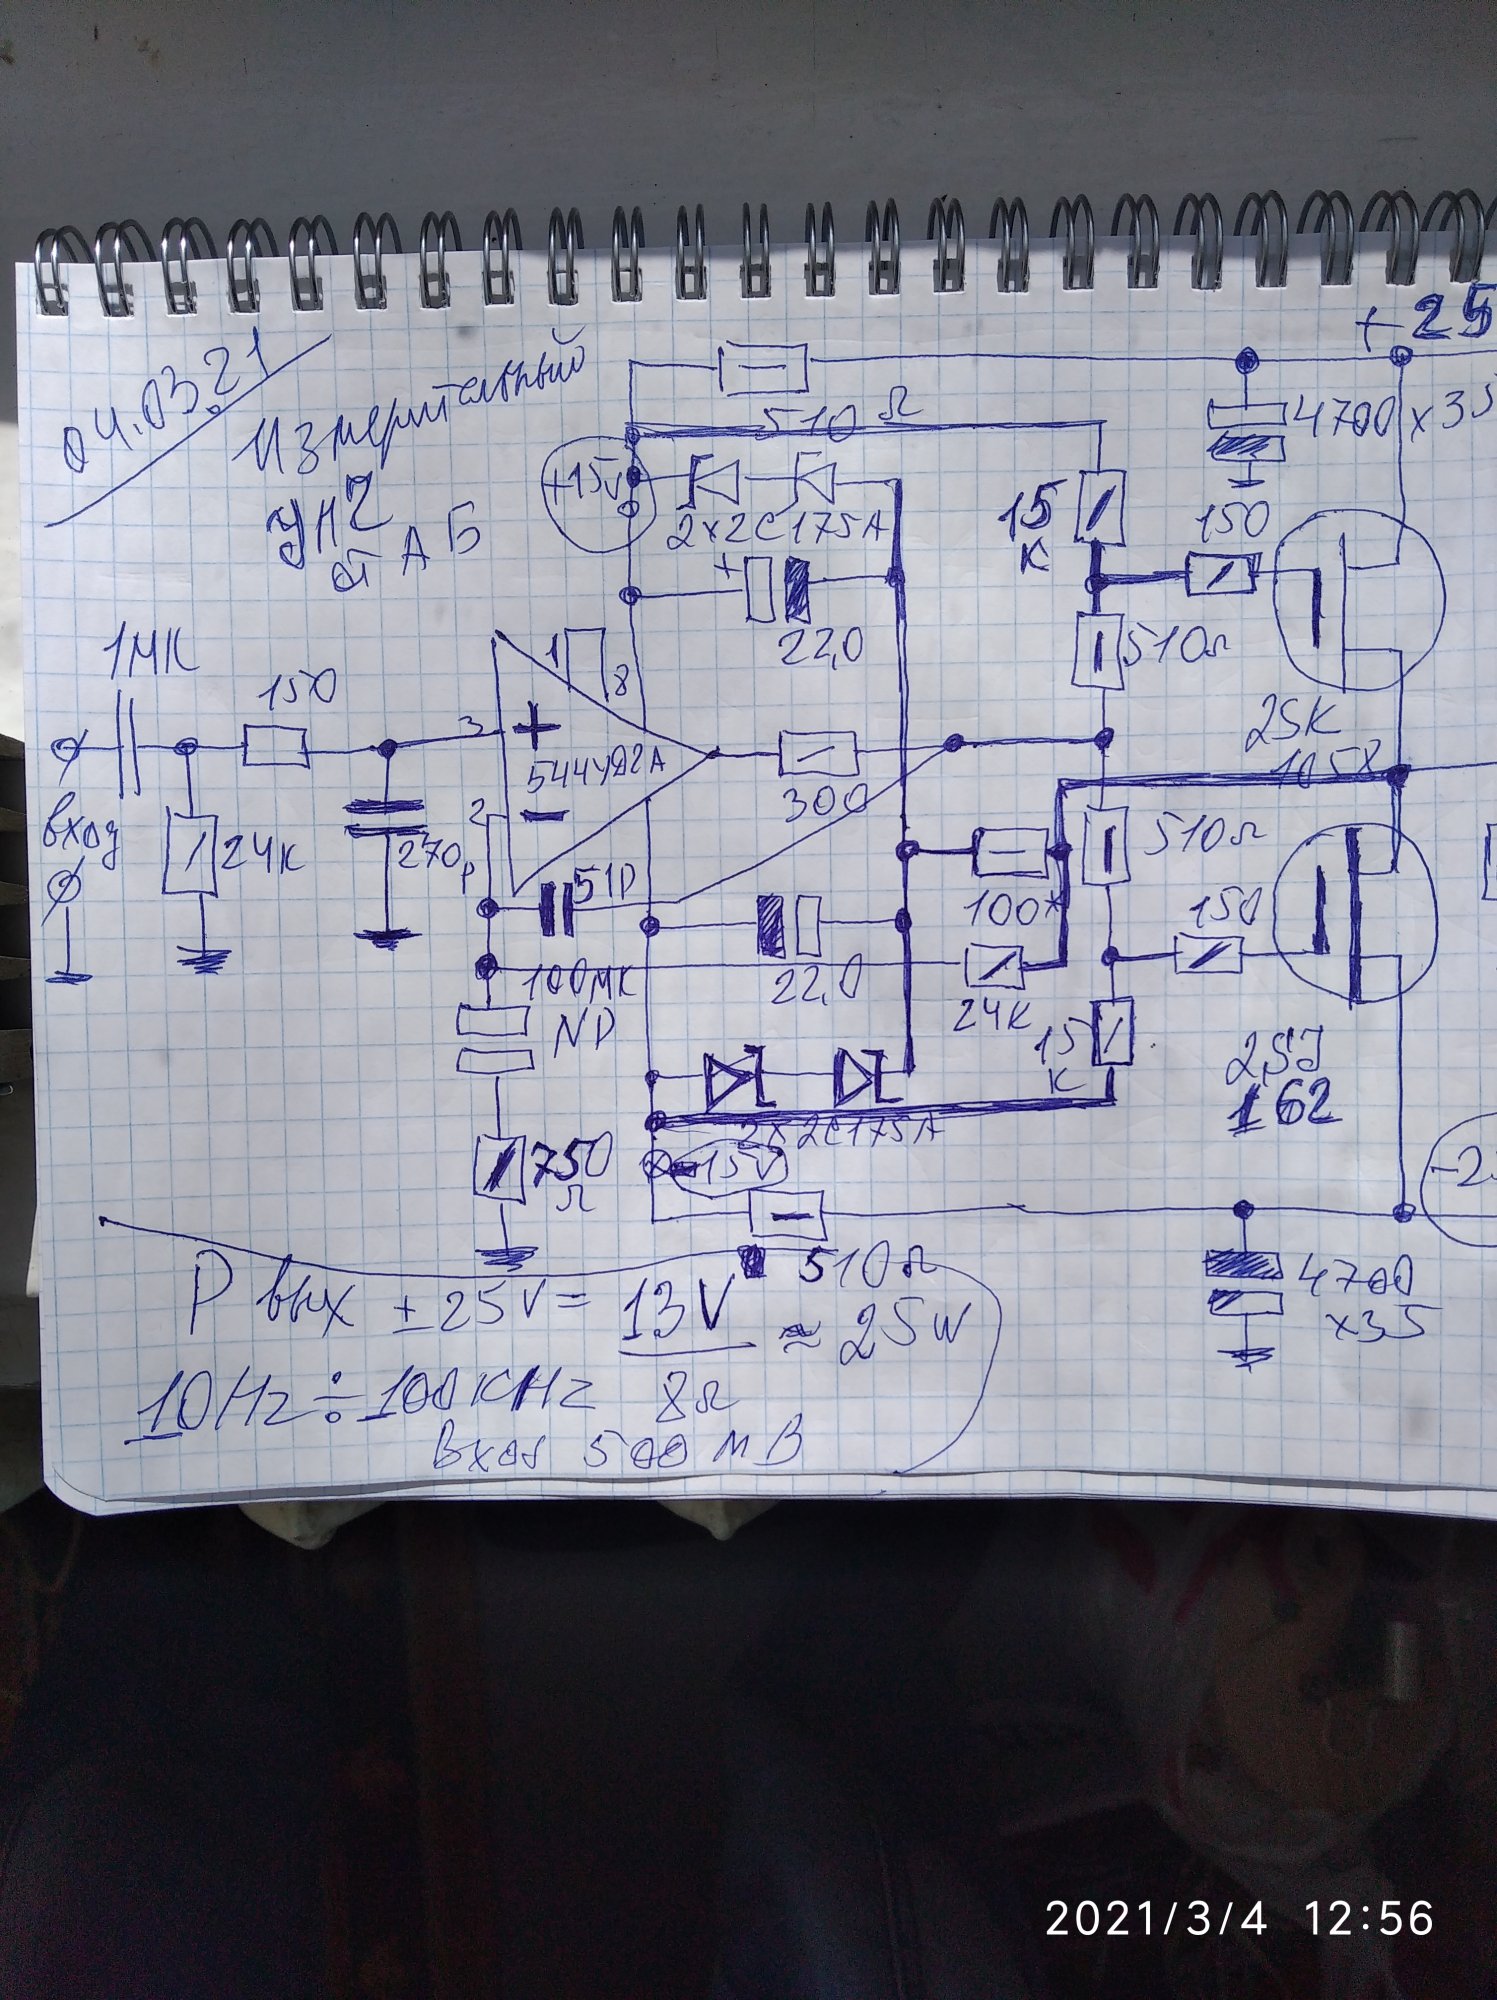 04.03.21
Измерительный
УНЧ
от А Б
+25
510Ω
4700x35
+15V
2x2С175А
15
к
150
+
22,0
510Ω
1мк
150
1
8
3
+
544УД2А
300
2SK
1058
вход
24к
270p
2
−
51p
510Ω
100*
150
100мк
NP
22,0
24к
15
к
2SJ
162
2x2С175А
750
Ω
-15V
-25
510Ω
4700
x35
Р вых ±25V = 13V ≈ 25W
8Ω
10Hz ÷ 100KHz
вход 500 мВ
2021/3/4 12:56